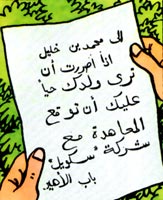 إلى محمد بن خليل
إذا أمررت أن
ترى ولدك حياً
عليك أن توقع
المعاهدة مع
شركة "سكويل"
باب الأحمر